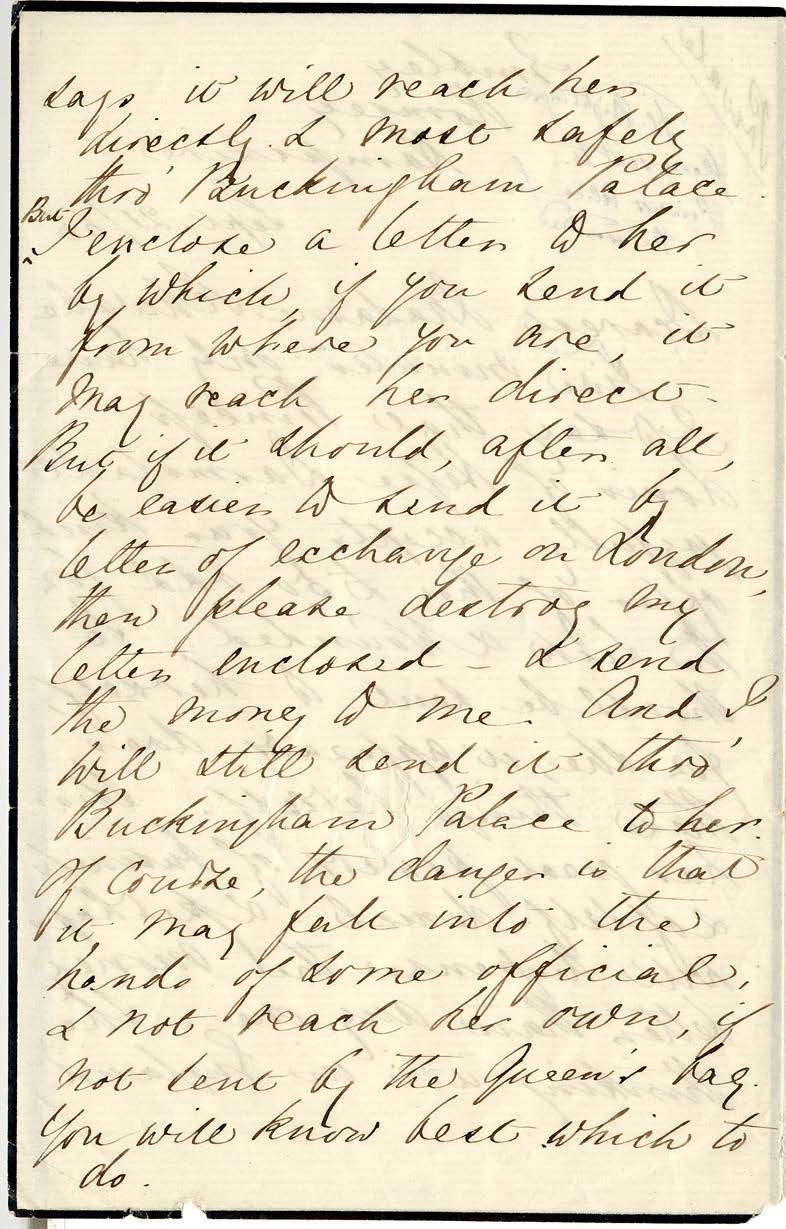 says it will reach her
directly & most safely
thro' Buckingham Palace.
But
I enclose a letter to her
by which, if you send it
from where you are, it
may reach her direct -
But if it should, after all,
be easier to send it by
letter of exchange on London,
then please destroy my
letter enclosed - & send
the money to me. And I
will still send it thro'
Buckingham Palace to her.
Of course, the danger is that
it may fall into the
hands of some official,
& not reach her own, if
not sent by the Queen's bag.
You will know best which to
do.